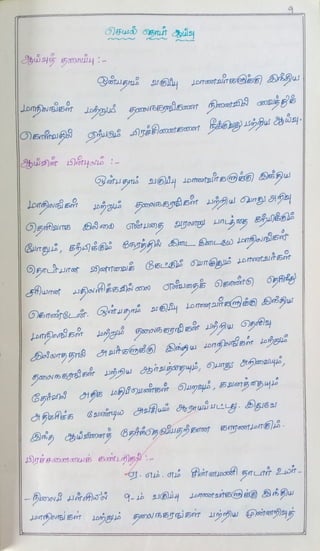 9
செயல் தொடர் ஆய்வு
ஆய்வுத் தலைப்பு :-
ஒன்பதாம் வகுப்பு மாணவர்களுக்கு இந்திய
மாநிலங்கள் மற்றும் தலைநகரங்களை நினைவில் வைத்துக்
கொள்வதில் ஏற்படும் பிரச்சினைகளை நீக்குவது பற்றிய ஆய்வு.
ஆய்வின் பின்புலம் :-
ஒன்பதாம் வகுப்பு மாணவர்களுக்கு இந்திய
மாநிலங்கள் மற்றும் தலைநகரங்கள் பற்றிய பொது அறிவு
தெளிவாக இல்லை என்பதை வரலாறு பாடத்தை கற்பிக்கும்
போதும், கற்பிக்கும் நேரத்தில் இடை இடையே மாநிலங்கள்
தொடர்பான வினாவைக் கேட்கும் பொழுதும் மாணவர்கள்
சரியான பதிலளிக்கவில்லை என்பதைக் கொண்டு தெரிந்து
கொண்டேன். ஒன்பதாம் வகுப்பு மாணவர்களுக்கு இந்திய
மாநிலங்கள் மற்றும் தலைநகரங்கள் பற்றிய தெளிவு
இல்லாததால் அவர்களுக்கு இந்திய மாநிலங்கள் மற்றும்
தலைநகரங்கள் பற்றிய ஆர்வத்தையும், பொது அறிவையும்,
தேர்வில் அதிக மதிப்பெண்கள் பெறவும், கவனத்தையும்
அதிகரிக்க வேண்டிய அவசியம் ஆராயப்பட்டது. இதுவே
இந்த ஆய்வினைத் தேர்ந்தெடுப்பதற்கான காரணமாகும்.
பிரச்சனையைக் கண்டறிதல் :-
ஏ. எம். எம் சின்னமணி நாடார் உயர்-
-நிலைப் பள்ளியில் 9-ம் வகுப்பு மாணவர்களுக்கு இந்திய
மாநிலங்கள் மற்றும் தலைநகரங்கள் பற்றிய